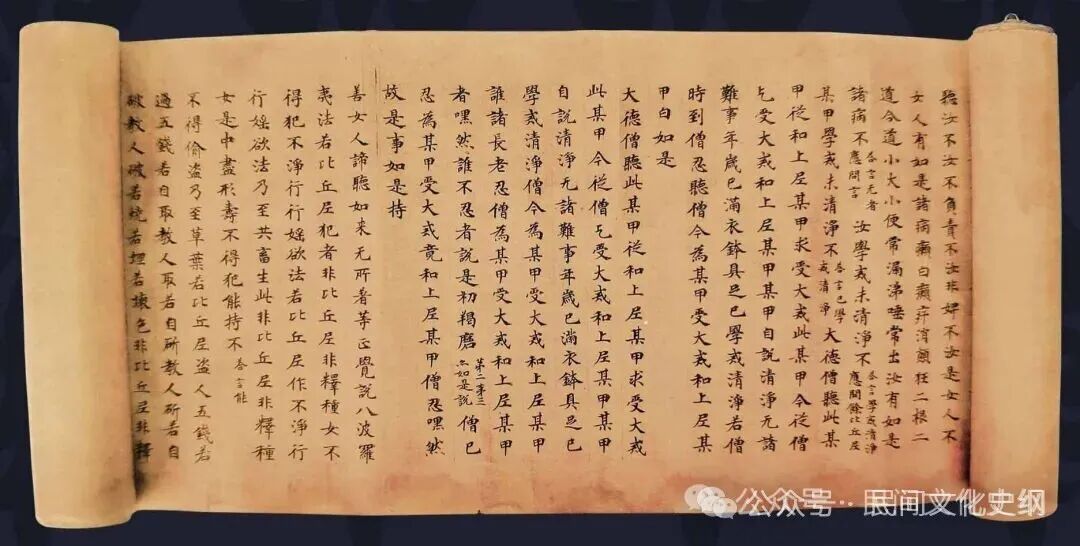 聽汝不汝不負責不汝非婢不汝是女人不
女人有如是諸病癩白癩疽消癲狂二根二
道合道小大小便常漏涕唾常出汝有如是
諸病不答言无者應問言汝學戒未清淨不答言學戒清淨應問餘比丘尼
某甲學戒未清淨不答言已學戒清淨大德僧聽此某
甲從和上尼某甲求受大戒此某甲今從僧
乞受大戒和上尼某甲某甲自說清淨无諸
難事年歲已滿衣鉢具足已學戒清淨若僧
時到僧忍聽僧今為某甲受大戒和上尼某
甲白如是
大德僧聽此某甲從和上尼某甲求受大戒
此某甲今從僧乞受大戒和上尼某甲某甲
自說清淨无諸難事年歲已滿衣鉢具足已
學戒清淨僧今為某甲受大戒和上尼某甲
誰諸長老忍僧為某甲受大戒和上尼某甲
者嘿然誰不忍者說是初羯磨第二第三亦如是說僧已
忍為某甲受大戒竟和上尼某甲僧忍嘿然
故是事如是持
善女人諦聽如來无所著等正覺說八波羅
夷法若比丘尼犯者非比丘尼非釋種女不
得犯不淨行行婬欲法若比丘尼作不淨行
行婬欲法乃至共畜生此非比丘尼非釋種
女是中盡形壽不得犯能持不答言能
不得偷盜乃至草葉若比丘尼盜人五錢若
過五錢若自取教人取若自斫教人斫若自
破教人破若燒若埋若壞色非比丘尼非釋
公众号·民间文化史纲